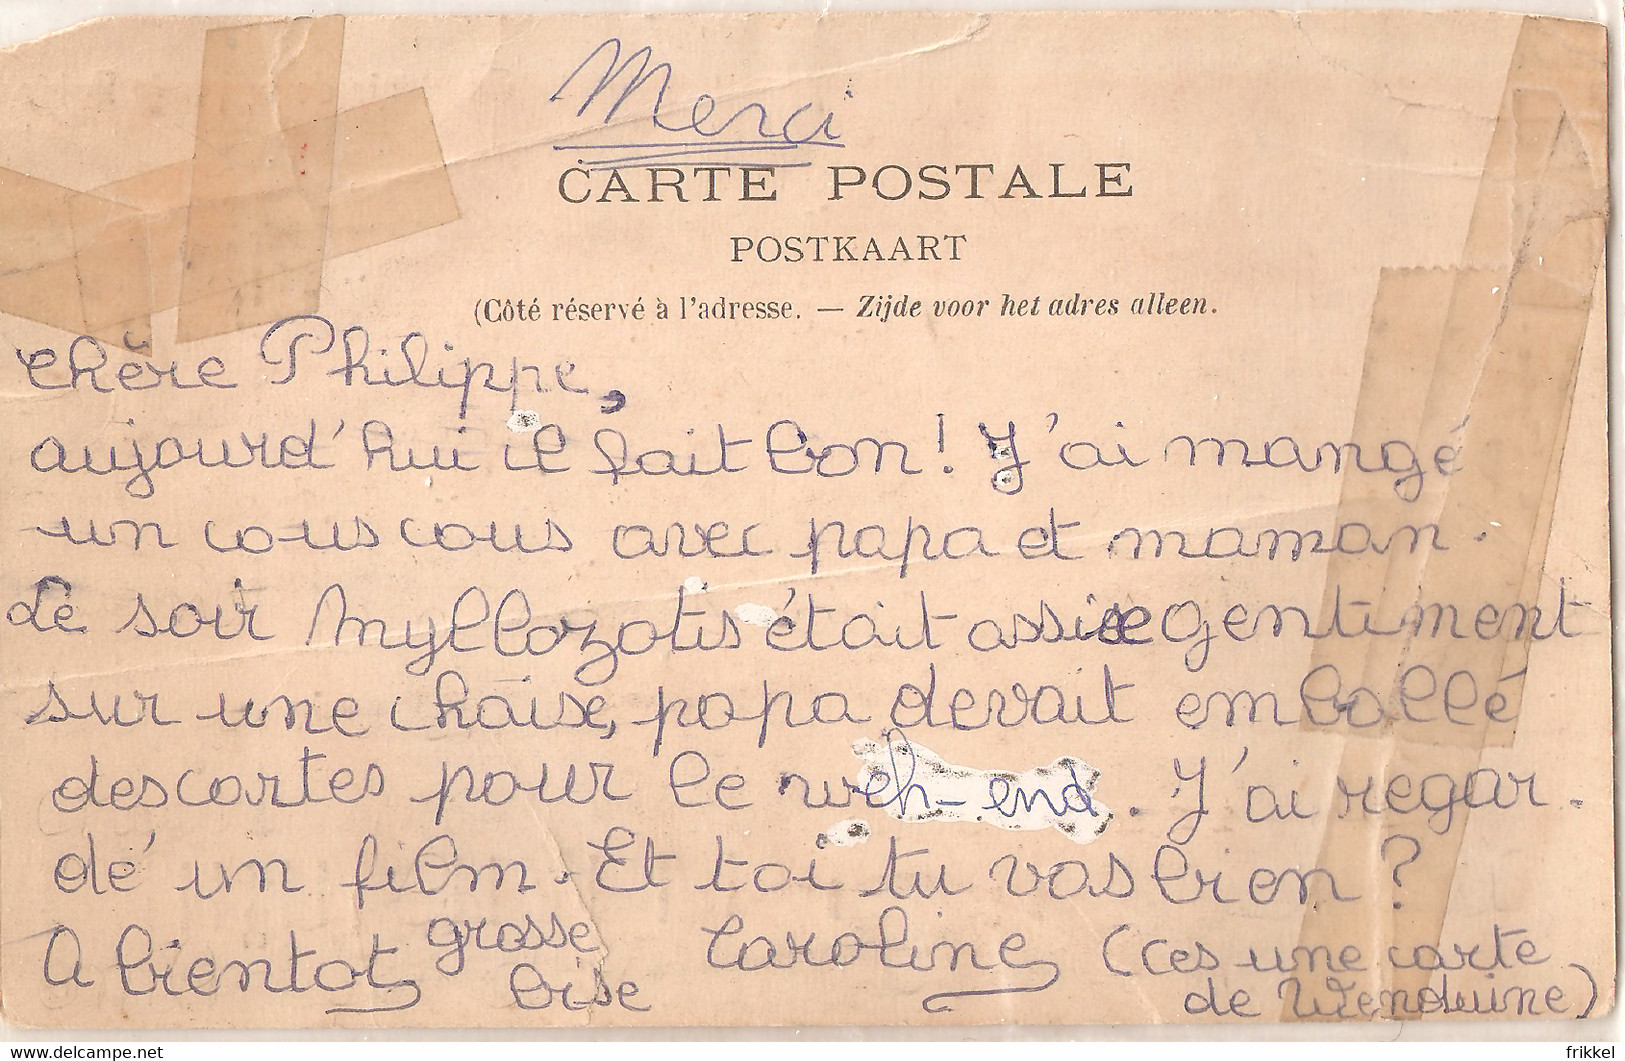 Merci
CARTE POSTALE
POSTKAART
(Côté réservé à l'adresse. — Zijde voor het adres alleen.
Chère Philippe,
aujourd'hui il fait bon! J'ai mangé
un cous cous avec papa et maman.
Le soir Myllozotis était assise gentiment
sur une chaise, papa devait emballé
des cartes pour le week-end. J'ai regar-
dé un film. Et toi tu vas bien?
A bientot grosse bise Caroline (ces une carte
de Wenduine)
www.delcampe.net
frikkel